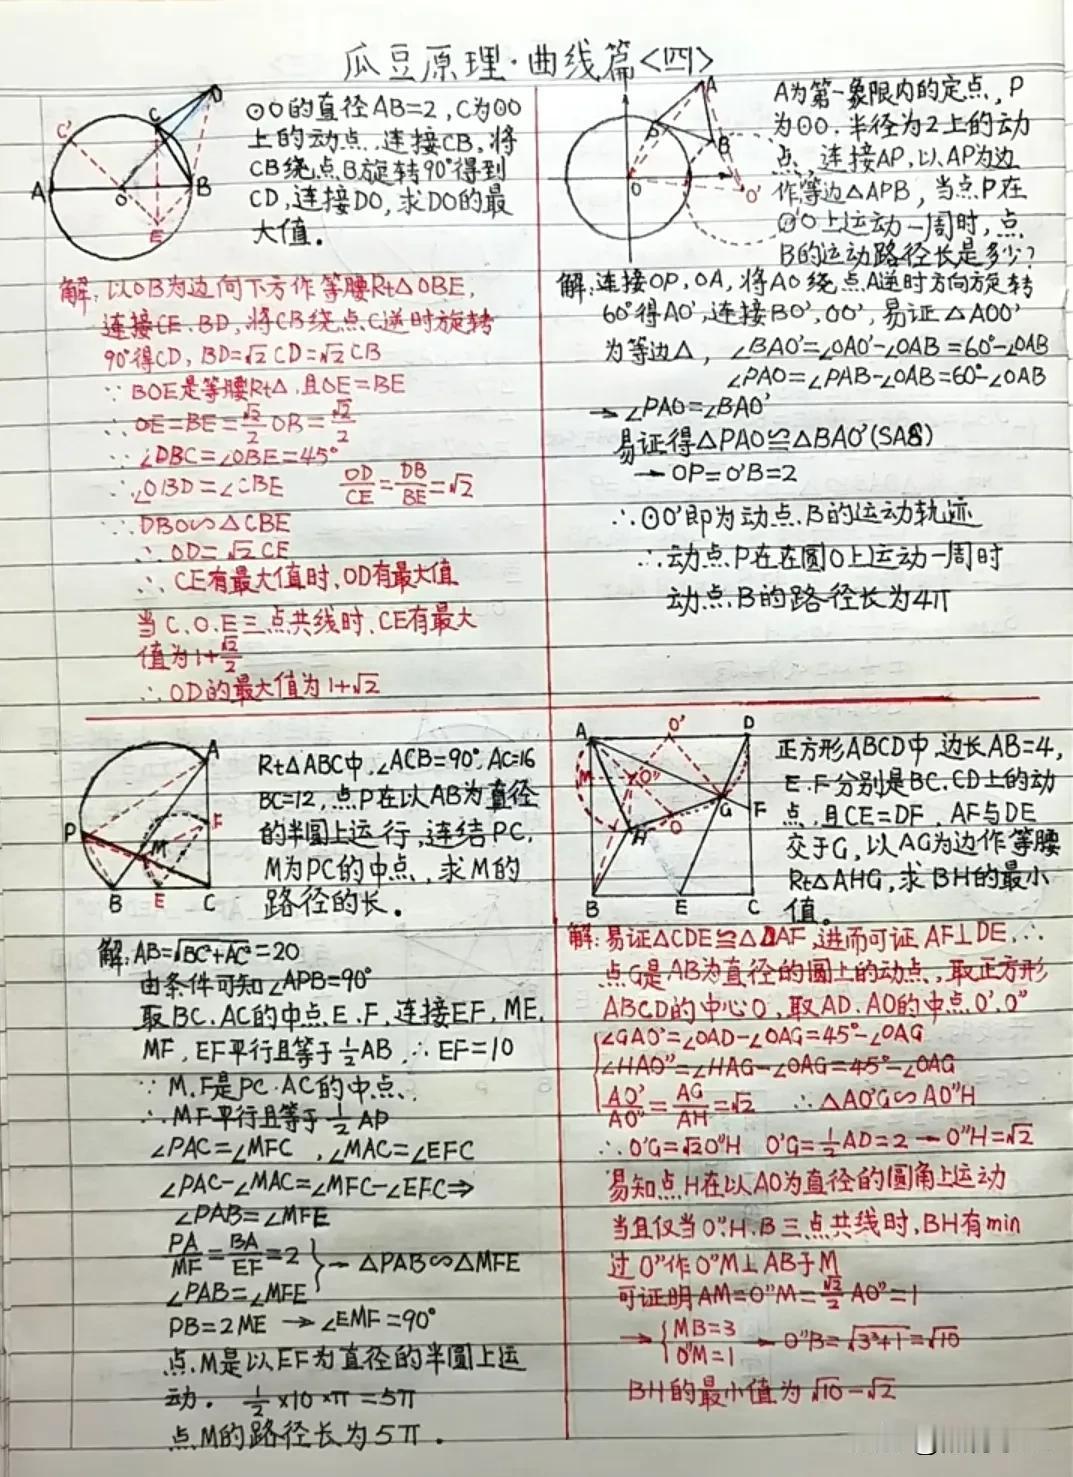 瓜豆原理·曲线篇<四>
⊙O的直径AB=2,C为⊙O
上的动点,连接CB,将
CB绕点B旋转90°得到
CD,连接DO,求DO的最
大值。
A
B
C
D
O
E
C'
解:以OB为边向下方作等腰Rt△OBE,
连接CE、BD,将CB绕点C逆时旋转
90°得CD,BD=√2CD=√2CB
∵BOE是等腰Rt△,且OE=BE
∴OE=BE=√2/2 OB=√2/2
∴∠DBC=∠OBE=45°
∴∠OBD=∠CBE OD/CE=DB/BE=√2
∴DBO∽△CBE
∴OD=√2CE
∴CE有最大值时、OD有最大值
当C、O、E三点共线时、CE有最大
值为1+√2/2
∴OD的最大值为1+√2
A为第一象限内的定点,P
为⊙O,半径为2上的动
点,连接AP,以AP为边
作等边△APB,当点P在
⊙O上运动一周时,点
B的运动路径长是多少?
A
P
B
O
O'
解:连接OP,OA,将AO绕点A逆时方向旋转
60°得AO',连接BO',OO',易证△AOO'
为等边△,∠BAO'=∠OAO'-∠OAB=60°-∠OAB
∠PAO=∠PAB-∠OAB=60°-∠OAB
→∠PAO=∠BAO'
易证得△PAO≌△BAO'(SAS)
→OP=O'B=2
∴⊙O'即为动点B的运动轨迹
∴动点P在在圆O上运动一周时
动点B的路径长为4π
Rt△ABC中,∠ACB=90°,AC=16
BC=12,点P在以AB为直径
的半圆上运行,连结PC,
M为PC的中点,求M的
路径的长。
A
P
M
F
B
E
C
解:AB=√BC²+AC²=20
由条件可知∠APB=90°
取BC、AC的中点E、F,连接EF,ME,
MF,EF平行且等于½AB,∴EF=10
∵M、F是PC、AC的中点、
∴MF平行且等于½AP
∠PAC=∠MFC,∠MAC=∠EFC
∠PAC-∠MAC=∠MFC-∠EFC⇒
∠PAB=∠MFE
PA/MF=BA/EF=2 }→△PAB∽△MFE
∠PAB=∠MFE
PB=2ME→∠EMF=90°
点M是以EF为直径的半圆上运
动。½×10×π=5π
点M的路径长为5π.
正方形ABCD中,边长AB=4,
E、F分别是BC、CD上的动
点,且CE=DF,AF与DE
交于G,以AG为边作等腰
Rt△AHG,求BH的最小
值。
A
O'
D
M
O''
H
O
G
F
B
E
C
解:易证△CDE≌△DAF,进而可证AF⊥DE,∴
点G是AB为直径的圆上的动点,取正方形
ABCD的中心O,取AD、AO的中点O'、O''
∠GAO'=∠OAD-∠OAG=45°-∠OAG
∠HAO''=∠HAG-∠OAG=45°-∠OAG
AO'/AO''=AG/AH=√2 ∴△AO'G∽AO''H
∴O'G=√2O''H O'G=½AD=2→O''H=√2
易知点H在以AO为直径的圆角上运动
当且仅当O''、H、B三点共线时,BH有min
过O''作O''M⊥AB于M
可证明AM=O''M=√2/2 AO''=1
→{MB=3
O''M=1 →O''B=√3²+1=√10
BH的最小值为√10-√2